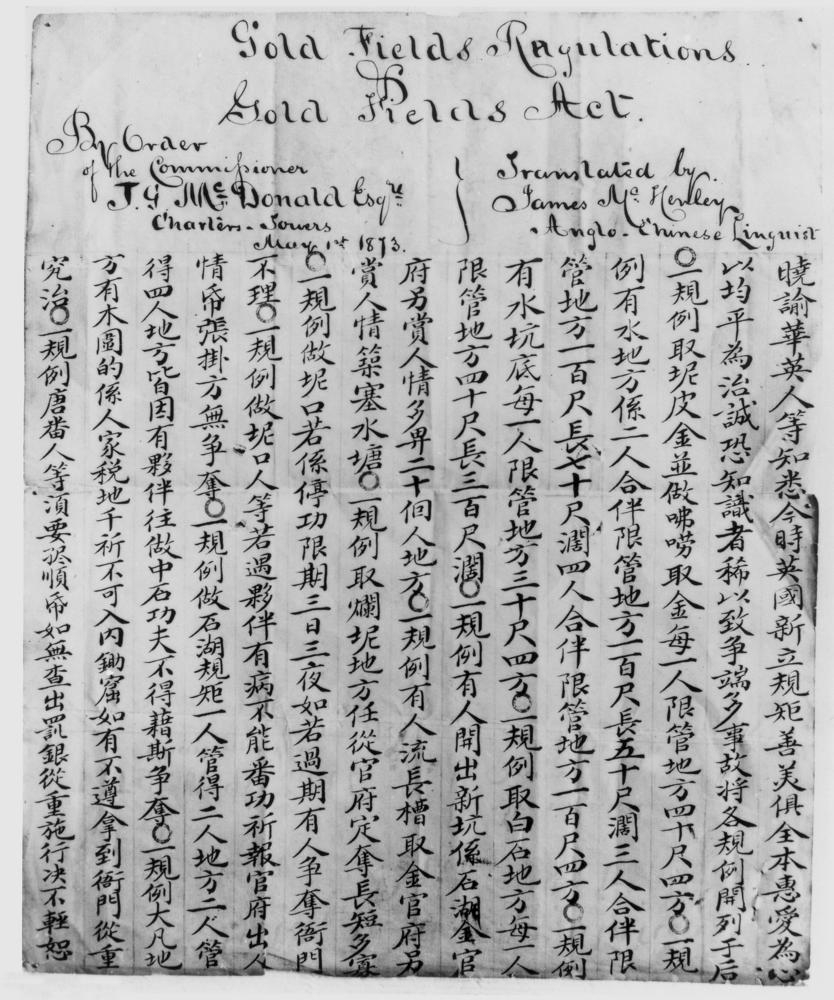 Gold Fields Regulations
&
Gold Fields Act.
By Order
of the Commissioner
J. G. McDonald Esqre
Charters-Towers
May 1st 1873.
Translated by
James Mc Henley
Anglo-Chinese Linguist
曉諭華英人等知悉今時英國新立規矩善美俱全本惠愛為心
以均平為治誠恐知識者稀以致争端多事故將各規例開列于后
〇一規例取坭皮金並做咈嘮取金每一人限管地方四十尺四方〇一規
例有水地方係二人合伴限管地方一百尺長五十尺濶三人合伴限
管地方一百尺長七十尺濶四人合伴限管地方一百尺四方〇一規例
有水坑底每一人限管地方三十尺四方〇一規例取白石地方每一人
限管地方四十尺長三百尺濶〇一規例有人開出新坑係石湖金官
府另賞人情多畀二十個人地方〇一規例有人流長槽取金官府另
賞人情築塞水塘〇一規例取爛坭地方任從官府定奪長短多寡
〇一規例做坭口若係停功限期三日三夜如若過期有人争奪衙門
不理〇一規例做坭口人等若遇夥伴有病不能番功祈報官府出人
情帋張掛方無争奪〇一規例做石湖規矩一人管得二人地方二人管
得四人地方皆因有夥伴往做中石功夫不得藉斯争奪〇一規例大凡地
方有木圍的係人家税地千祈不可入内鋤窟如有不遵拿到衙門從重
究治〇一規例唐番人等須要孖順帋如無查出罰銀從重施行决不輕恕